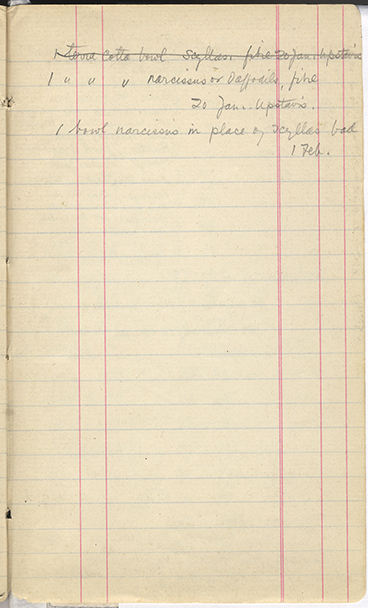 1 terra cotta bowl Scyllas. fibre 20 Jan. Upstairs
1 " " " narcissus or Daffodils, fibre
20 Jan. Upstairs.
1 bowl narcissus in place of Scyllas bad
1 Feb.